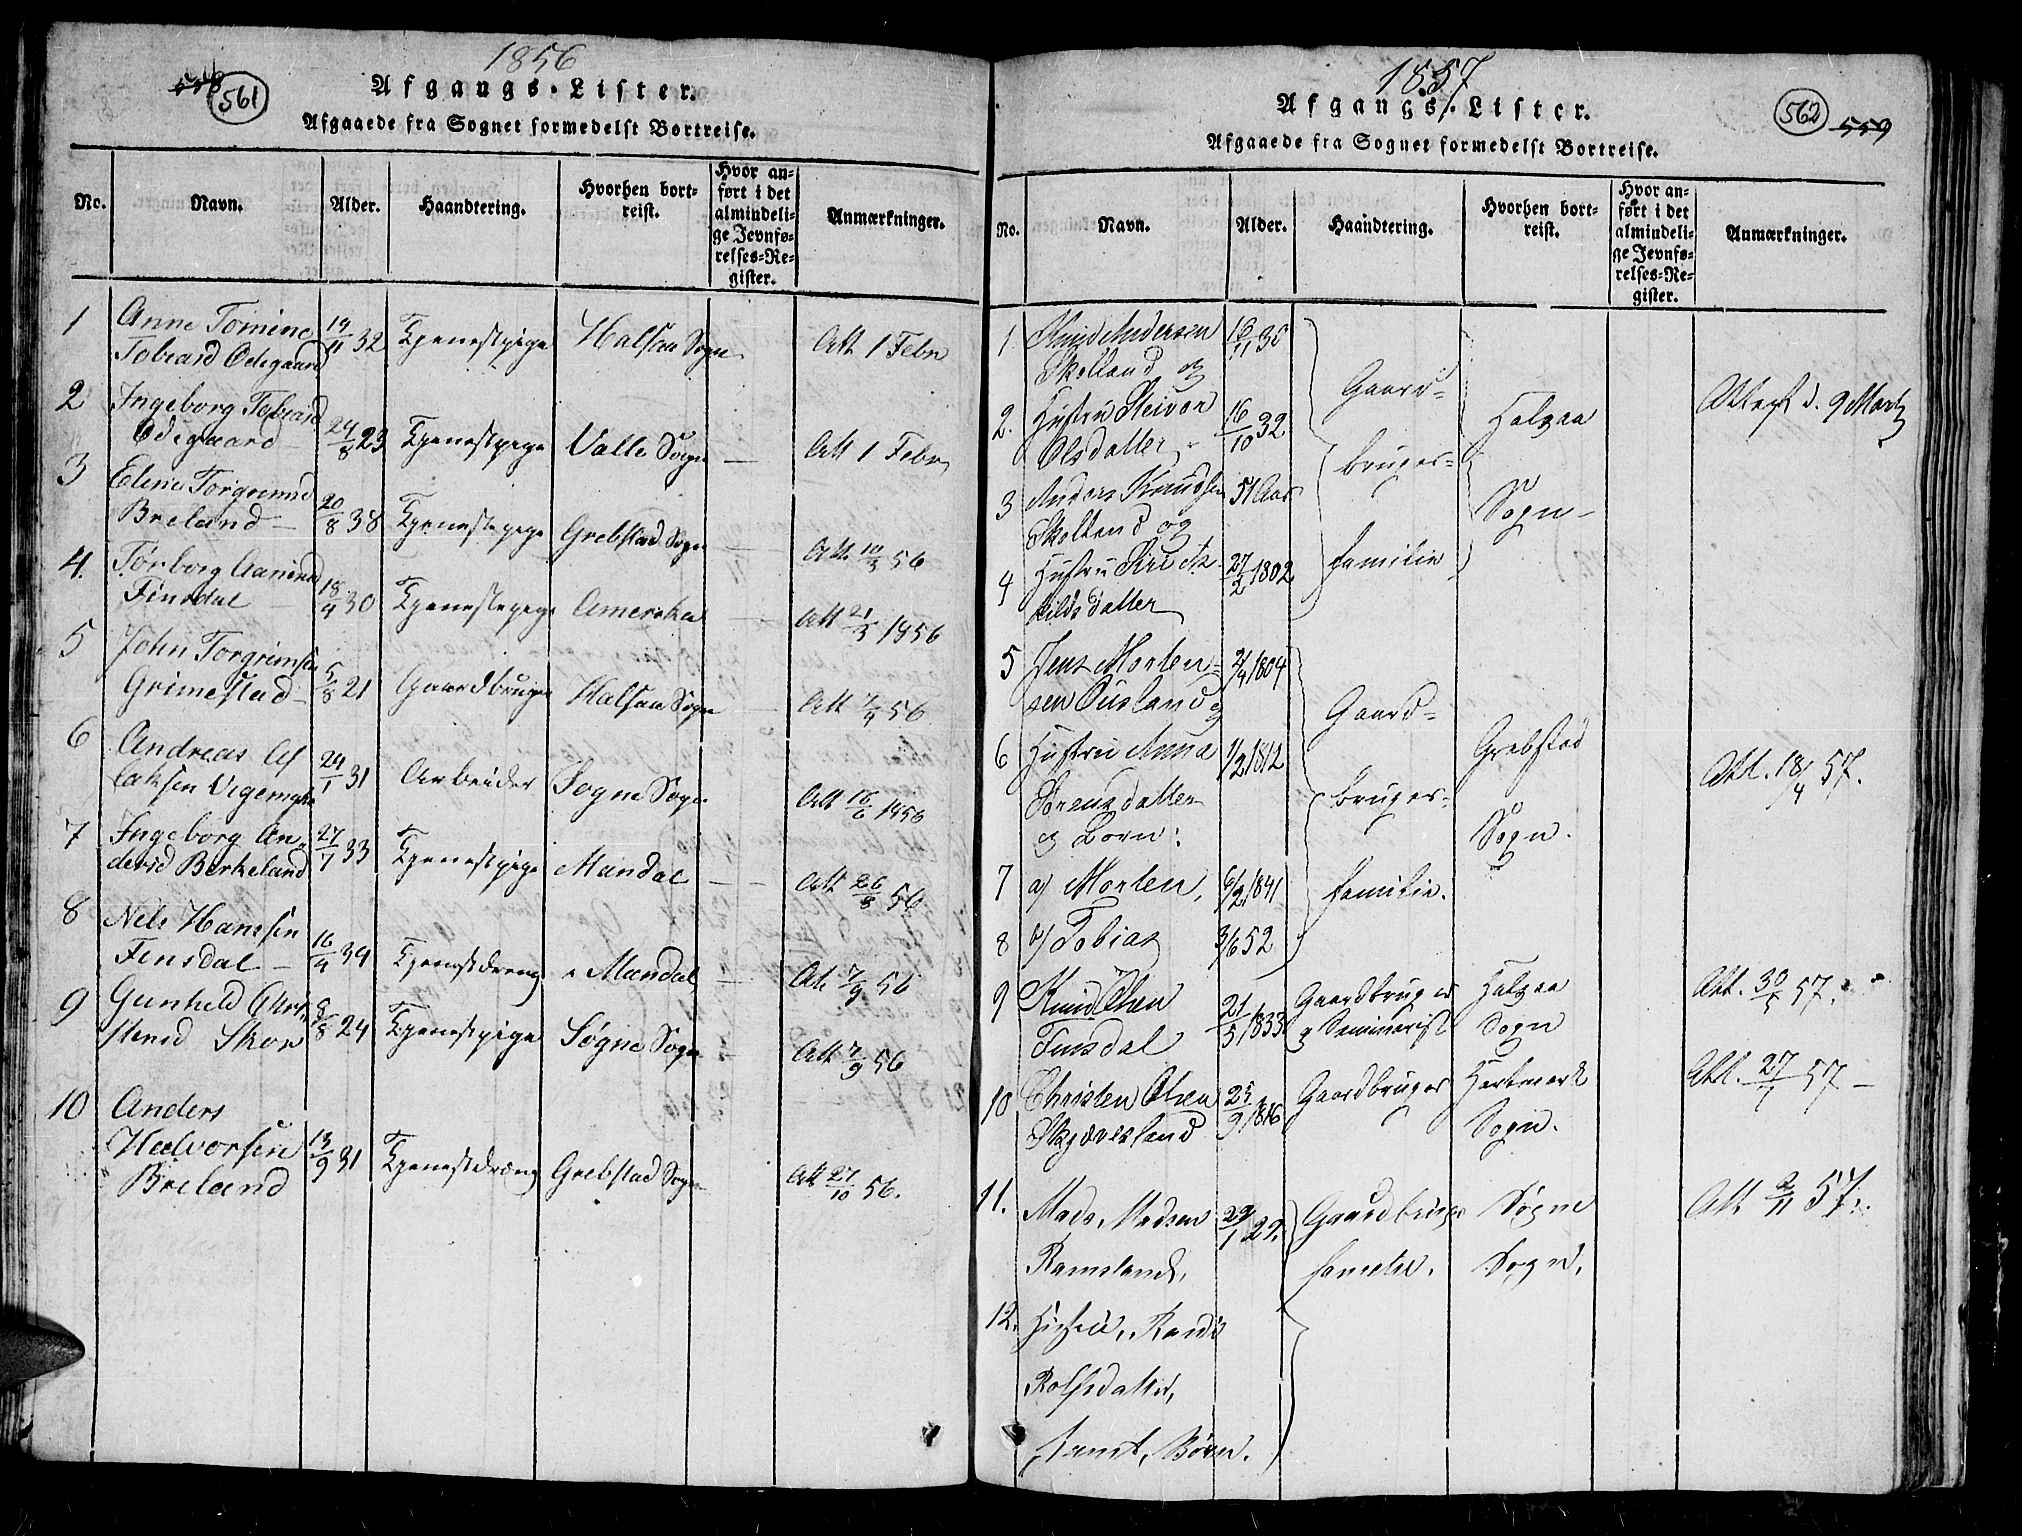 1856
558 561
Afgangs-Lister.
Afgaaede fra Sognet formedelst Bortreise.
No. Navn. Alder. Haandtering. Hvorhen bort-
reist. Hvor an-
ført i det
almindeli-
ge Jevnfø-
relses-Re-
gister. Anmærkninger.
1 Anne Tomine 19/11 32 Tjenestpige Halsaa Sogn Att 1 Febr
Tobiasd Ødegaard
2 Ingeborg Tobiasd
Ødegaard 24/8 23 Tjenestpige Valle Sogn Att 1 Febr
3 Eline Torgrimsd
Breland 20/8 38 Tjenestepige Grebstad Sogn Att 10/3 56
4. Torborg Aanensd
Finsdal 18/4 30 Tjenestepige Amerika Att 21/3 1856
5 John Torgrimsen
Grimestad 5/8 21 Gaardbruger Halsaa Sogn Att 7/4 56
6 Andreas As
laksen Vigemyr 24/1 31 Arbeider Sogne Sogn Att 18/6 1856
7 Ingeborg An-
dersd Berkeland 27/7 33 Tjenestpige Mandal Att 26/8 56
8 Nels Hanssen
Finsdal 16/4 34 Tjenestdreng Mandal Att 7/9 56
9 Gunhild Chri
stensd Skov 8/8 24 Tjenestpige Søgne Sogn Att 7/9 56
10 Anders
Halvorsen 13/9 31 Tjenestdreng Grebstad Sogn Att 27/10 56.
Breland
1857
562 559
Afgangs-Lister.
Afgaaede fra Sognet formedelst Bortreise.
No. Navn. Alder. Haandtering. Hvorhen bort-
reist. Hvor an-
ført i det
almindeli-
ge Jevnfø-
relses-Re-
gister. Anmærkninger.
1. Knud Andersen 16/11 30
Skolland og
2. Hustru Steivor 16/10 32 Gaard- Halsaa d. 9 Marts
Olsdatter
3 Anders Knudsen 51 Aar bruger- Sogn-
Skolland og
4 Hustru Siri 27/2 1802 familie
kildsdatter
5 Jens Morten- 21/4 1804
sen Ousland og Gaard-
6 Hustru Anna 1/2 1812 Grebstad Att. 18/4 57.
Sørensdatter bruger-
og Børn: Sogn.
7 a/ Morten, 6/2 1841 familie.
8 b/ Tobias 3/6 52
9 Knud Olsen 21/5 1833 Gaardbruger Halsaa Att. 30/5 57.
Finsdal og Seminarist Sogn
10 Christen Olsen 25/9 1816 Gaardbruger Hartmark Att. 27/7 57
Skjævesland Sogn.
11. Mads Madsen 29/1 29. Gaardbruger Søgne Att 2/11 57.
Ramsland, familie. Sogn.
12. Hustru, Randi
Rolfsdatter,
samt, Børn.